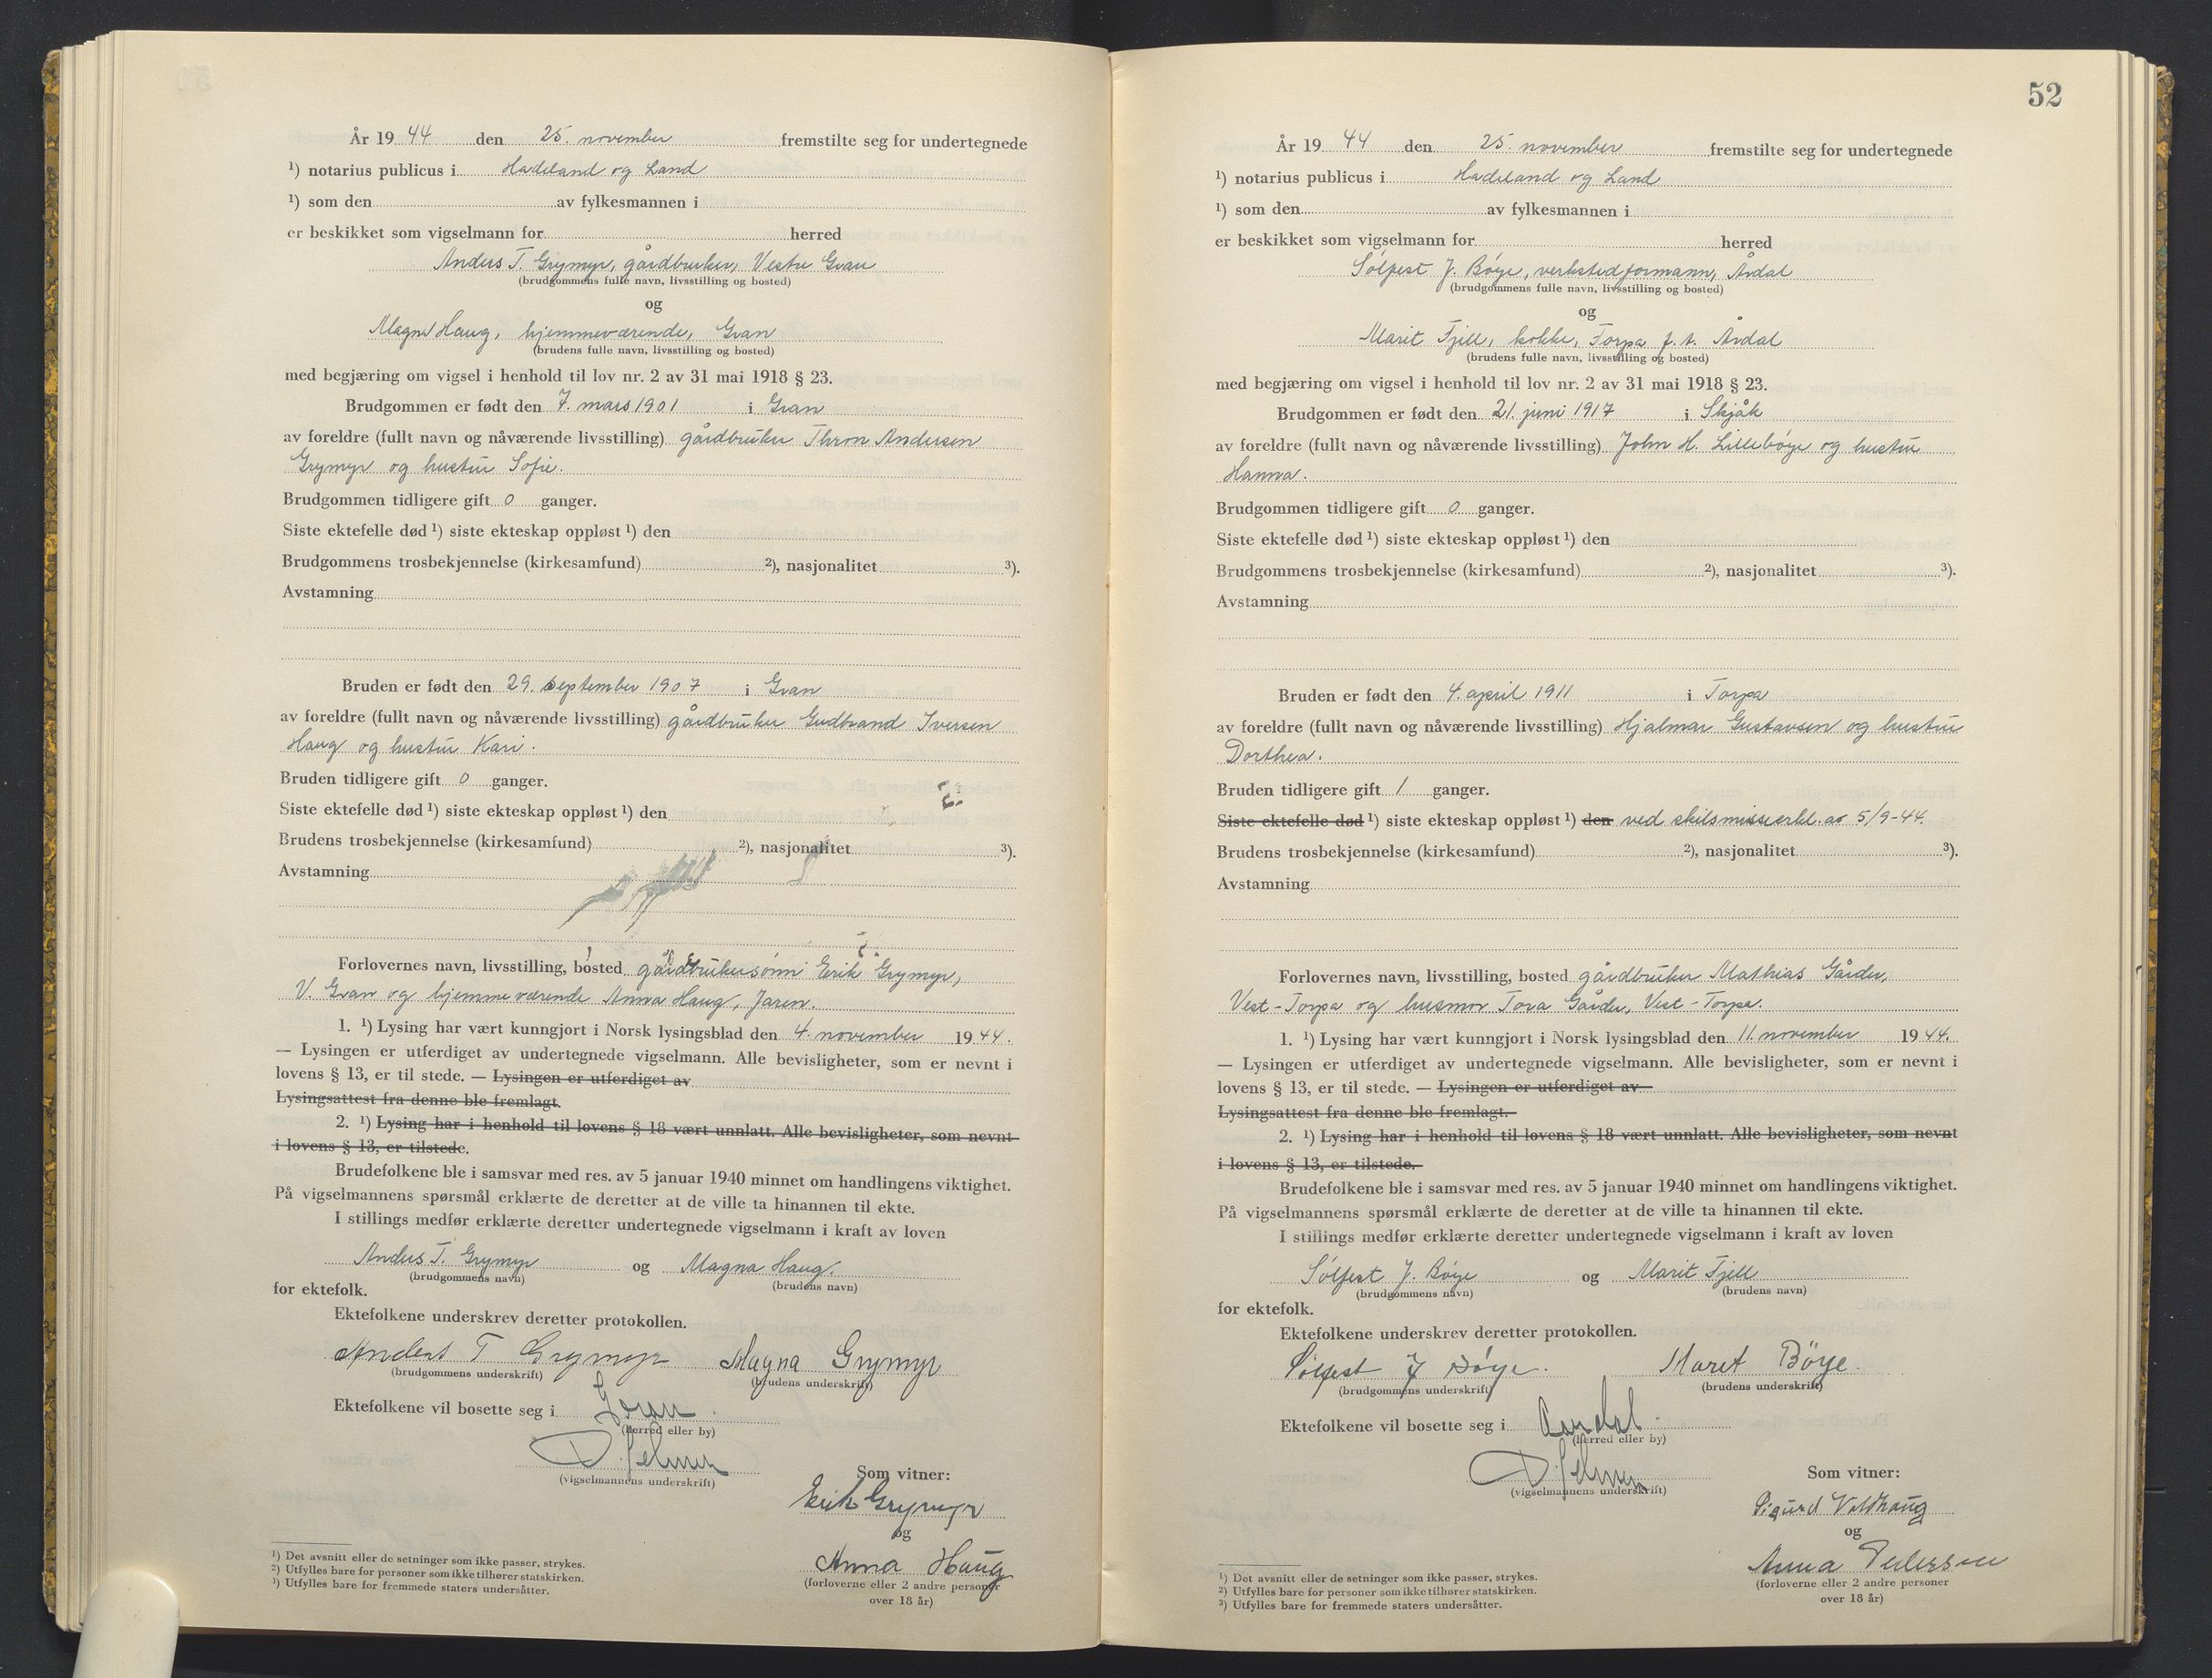 År 19 44 den 25. november fremstilte seg for undertegnede
¹) notarius publicus i Hadeland og Land
¹) som den av fylkesmannen i
er beskikket som vigselmann for herred
Anders T. Grymyr, gårdbruker, Vestre Gran
(brudgommens fulle navn, livsstilling og bosted)
og
Magna Haug, hjemmeværende, Gran
(brudens fulle navn, livsstilling og bosted)
med begjæring om vigsel i henhold til lov nr. 2 av 31 mai 1918 § 23.
Brudgommen er født den 7. mars 1901 i Gran
av foreldre (fullt navn og nåværende livsstilling) gårdbruker Thron Andersen
Grymyr og hustru Sofie.
Brudgommen tidligere gift 0 ganger.
Siste ektefelle død ¹) siste ekteskap oppløst ¹) den
Brudgommens trosbekjennelse (kirkesamfund) ²), nasjonalitet ³).
Avstamning
Bruden er født den 29. september 1907 i Gran
av foreldre (fullt navn og nåværende livsstilling) gårdbruker Gudbrand Iversen
Haug og hustru Kari.
Bruden tidligere gift 0 ganger.
Siste ektefelle død ¹) siste ekteskap oppløst ¹) den
Brudens trosbekjennelse (kirkesamfund) ²), nasjonalitet ³).
Avstamning
Forlovernes navn, livsstilling, bosted gårdbrukersønn Erik Grymyr,
V. Gran og hjemmeværende Anna Haug, Jaren.
1. ¹) Lysing har vært kunngjort i Norsk lysingsblad den 4. november 1944.
— Lysingen er utferdiget av undertegnede vigselmann. Alle bevisligheter, som er nevnt i
lovens § 13, er til stede. — Lysingen er utferdiget av
Lysingsattest fra denne ble fremlagt.
2. ¹) Lysing har i henhold til lovens § 18 vært unnlatt. Alle bevisligheter, som nevnt
i lovens § 13, er tilstede.
Brudefolkene ble i samsvar med res. av 5 januar 1940 minnet om handlingens viktighet.
På vigselmannens spørsmål erklærte de deretter at de ville ta hinannen til ekte.
I stillings medfør erklærte deretter undertegnede vigselmann i kraft av loven
Anders T. Grymyr og Magna Haug.
(brudgommens navn) (brudens navn)
for ektefolk.
Ektefolkene underskrev deretter protokollen.
Anders T Grymyr Magna Grymyr
(brudgommens underskrift) (brudens underskrift)
Ektefolkene vil bosette seg i Gran.
(herred eller by)
(vigselmannens underskrift)
Som vitner:
Erik Grymyr
og
Anna Haug
(forloverne eller 2 andre personer
over 18 år)
¹) Det avsnitt eller de setninger som ikke passer, strykes.
²) Utfylles bare for personer som ikke tilhører statskirken.
³) Utfylles bare for fremmede staters undersåtter.
52
År 19 44 den 25. november fremstilte seg for undertegnede
¹) notarius publicus i Hadeland og Land
¹) som den av fylkesmannen i
er beskikket som vigselmann for herred
Sølfest J. Bøye, verkstedformann, Årdal
(brudgommens fulle navn, livsstilling og bosted)
og
Marit Fjell, kokke, Torpa f. t. Årdal
(brudens fulle navn, livsstilling og bosted)
med begjæring om vigsel i henhold til lov nr. 2 av 31 mai 1918 § 23.
Brudgommen er født den 21. juni 1917 i Skjåk
av foreldre (fullt navn og nåværende livsstilling) John H. Lillebøye og hustru
Hanna.
Brudgommen tidligere gift 0 ganger.
Siste ektefelle død ¹) siste ekteskap oppløst ¹) den
Brudgommens trosbekjennelse (kirkesamfund) ²), nasjonalitet ³).
Avstamning
Bruden er født den 4. april 1911 i Torpa
av foreldre (fullt navn og nåværende livsstilling) Hjalmar Gustavsen og hustru
Dorthea.
Bruden tidligere gift 1 ganger.
Siste ektefelle død ¹) siste ekteskap oppløst ¹) den ved skilsmisseerkl. av 5/9-44.
Brudens trosbekjennelse (kirkesamfund) ²), nasjonalitet ³).
Avstamning
Forlovernes navn, livsstilling, bosted gårdbruker Mathias Gårder,
Vest-Torpa og husmor Tora Gårder, Vest-Torpa.
1. ¹) Lysing har vært kunngjort i Norsk lysingsblad den 11. november 1944.
— Lysingen er utferdiget av undertegnede vigselmann. Alle bevisligheter, som er nevnt i
lovens § 13, er til stede. — Lysingen er utferdiget av
Lysingsattest fra denne ble fremlagt.
2. ¹) Lysing har i henhold til lovens § 18 vært unnlatt. Alle bevisligheter, som nevnt
i lovens § 13, er tilstede.
Brudefolkene ble i samsvar med res. av 5 januar 1940 minnet om handlingens viktighet.
På vigselmannens spørsmål erklærte de deretter at de ville ta hinannen til ekte.
I stillings medfør erklærte deretter undertegnede vigselmann i kraft av loven
Sølfest J. Bøye og Marit Fjell
(brudgommens navn) (brudens navn)
for ektefolk.
Ektefolkene underskrev deretter protokollen.
Sølfest J Bøye. Marit Böye.
(brudgommens underskrift) (brudens underskrift)
Ektefolkene vil bosette seg i Aardal.
(herred eller by)
(vigselmannens underskrift)
Som vitner:
Sigurd Voldhaug
og
Anna Pedersen
(forloverne eller 2 andre personer
over 18 år)
¹) Det avsnitt eller de setninger som ikke passer, strykes.
²) Utfylles bare for personer som ikke tilhører statskirken.
³) Utfylles bare for fremmede staters undersåtter.